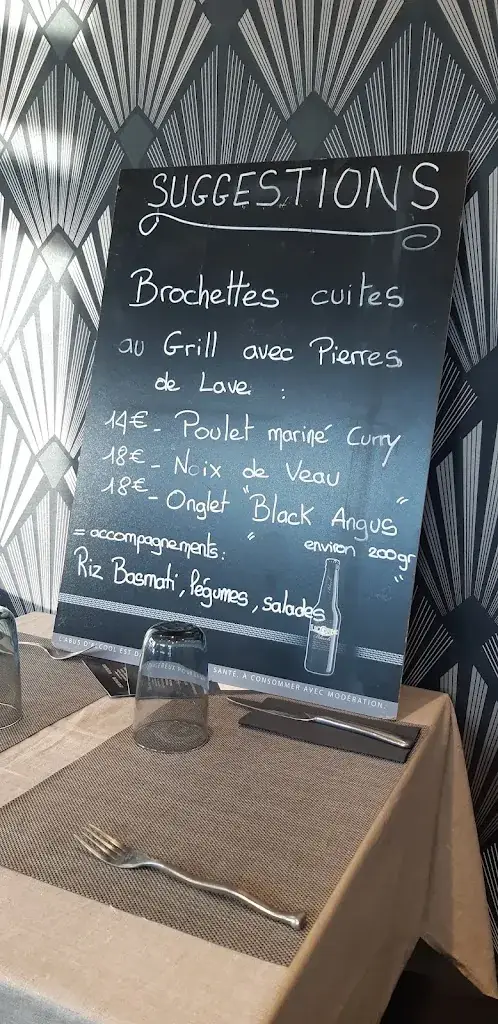 SUGGESTIONS
Brochettes cuites
au Grill avec Pierres
de Lave :
14€ - Poulet mariné Curry
18€ - Noix de Veau
18€ - Onglet "Black Angus"
environ 200gr
= accompagnements :
Riz Basmati, légumes, salades
L'ABUS D'ALCOOL EST DANGEREUX POUR LA SANTÉ. À CONSOMMER AVEC MODÉRATION.